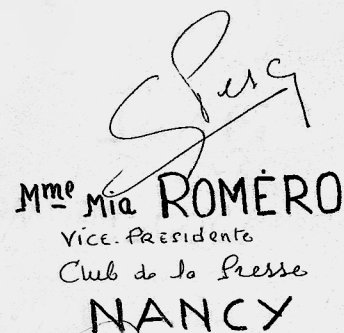 Mme Mia ROMÉRO
VICE-PRESIDENTE
Club de la Presse
NANCY